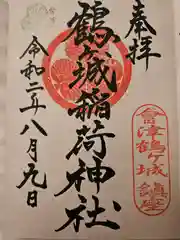 奉拝
會津鶴ケ城鎮座
鶴ヶ城稲荷神社
令和二年八月九日